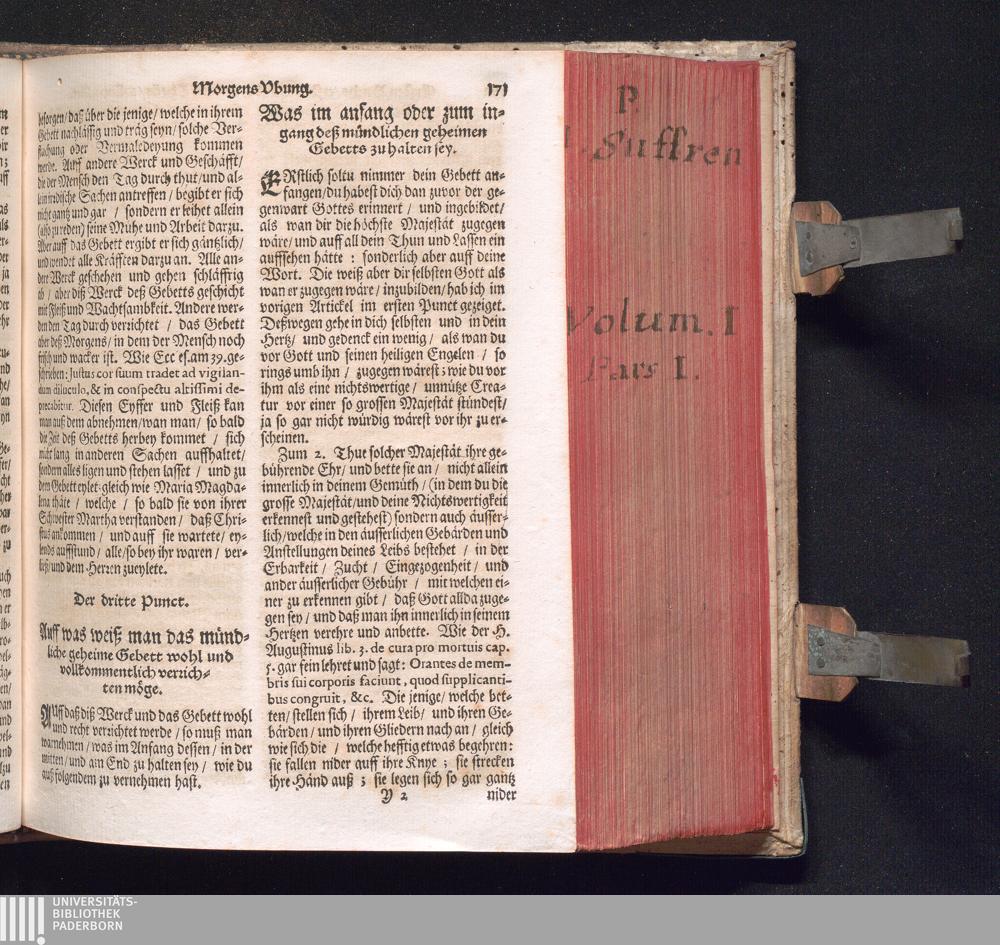 Morgens Vbung. 171
besorgen/ daß über die jenige/ welche in ihrem
Gebett nachlässig und träg seyn/ solche Ver-
fluchung oder Vermaledeyung kommen
werde. Auff andere Werck und Geschäfft/
die der Mensch den Tag durch thut/ und al-
lein irrdische Sachen antreffen/ begibt er sich
nicht gantz und gar / sondern er leihet allein
(also zu reden) seine Mühe und Arbeit darzu.
Aber auff das Gebett ergibt er sich gäntzlich/
und wendet alle Kräfften darzu an. Alle an-
dere Werck geschehen und gehen schläffrig
ab / aber diß Werck deß Gebetts geschicht
mit Fleiß und Wachtsambkeit. Andere wer-
den den Tag durch verzichtet / das Gebett
aber deß Morgens/ in dem der Mensch noch
frisch und wacker ist. Wie Ecc es. am 39. ge-
schrieben: Justus cor suum tradet ad vigilan-
dum diluculo, & in conspectu altissimi de-
precabitur. Diesen Eyffer und Fleiß kan
man auß dem abnehmen/ wan man/ so bald
die Zeit deß Gebetts herbey kommet / sich
nicht lang in anderen Sachen auffhaltet/
sondern alles ligen und stehen lasset / und zu
dem Gebett eylet: gleich wie Maria Magda-
lena thäte / welche / so bald sie von ihrer
Schwester Martha verstanden / daß Chri-
stus ankommen / und auff sie wartete/ ey-
lends auffstund / alle/ so bey ihr waren / ver-
ließ/ und dem Herren zueylete.
Der dritte Punct.
Auff was weiß man das münd-
liche geheime Gebett wohl und
vollkommentlich verrich-
ten möge.
Auff daß diß Werck und das Gebett wohl
und recht verzichtet werde / so muß man
warnehmen/ was im Anfang dessen/ in der
mitten/ und am End zu halten sey / wie du
auß folgendem zu vernehmen hast.
Was im anfang oder zum in-
gang deß mündlichen geheimen
Gebetts zu halten sey.
ERstlich soltu nimmer dein Gebett an-
fangen/ du habest dich dan zuvor der ge-
genwart Gottes erinnert / und ingebildet/
als wan dir die höchste Majestät zugegen
wäre/ und auff all dein Thun und Lassen ein
auffsehen hätte : sonderlich aber auff deine
Wort. Die weiß aber dir selbsten Gott als
wan er zugegen wäre / inzubilden/ hab ich im
vorigen Artickel im ersten Punct gezeiget.
Deßwegen gehe in dich selbsten und in dein
Hertz/ und gedenck ein wenig / als wan du
vor Gott und seinen heiligen Engelen / so
rings umb ihn / zugegen wärest ; wie du vor
ihm als eine nichtswertige / unnütze Crea-
tur vor einer so grossen Majestät stündest/
ja so gar nicht würdig wärest vor ihr zu er-
scheinen.
Zum 2. Thue solcher Majestät ihre ge-
bührende Ehr/ und bette sie an / nicht allein
innerlich in deinem Gemüth/ (in dem du die
grosse Majestät/ und deine Nichtswertigkeit
erkennest und gestehest) sondern auch äusser-
lich/ welche in den äusserlichen Gebärden und
Anstellungen deines Leibs bestehet / in der
Erbarkeit / Zucht / Eingezogenheit / und
ander äusserlicher Gebühr / mit welchen ei-
ner zu erkennen gibt / daß Gott allda zuge-
gen sey / und daß man ihn innerlich in seinem
Hertzen verehre und anbette. Wie der H.
Augustinus lib. 3. de cura pro mortuis cap.
5. gar fein lehret und sagt: Orantes de mem-
bris sui corporis faciunt, quod supplicanti-
bus congruit, &c. Die jenige/ welche bet-
ten/ stellen sich / ihrem Leib/ und ihren Ge-
bärden/ und ihren Gliedern nach an / gleich
wie sich die / welche hefftig etwas begehren:
sie fallen nider auff ihre Knye ; sie strecken
ihre Händ auß ; sie legen sich so gar gantz
Y 2 nider
P.
Suffren
Volum. I
Pars I.
UNIVERSITÄTS-
BIBLIOTHEK
PADERBORN